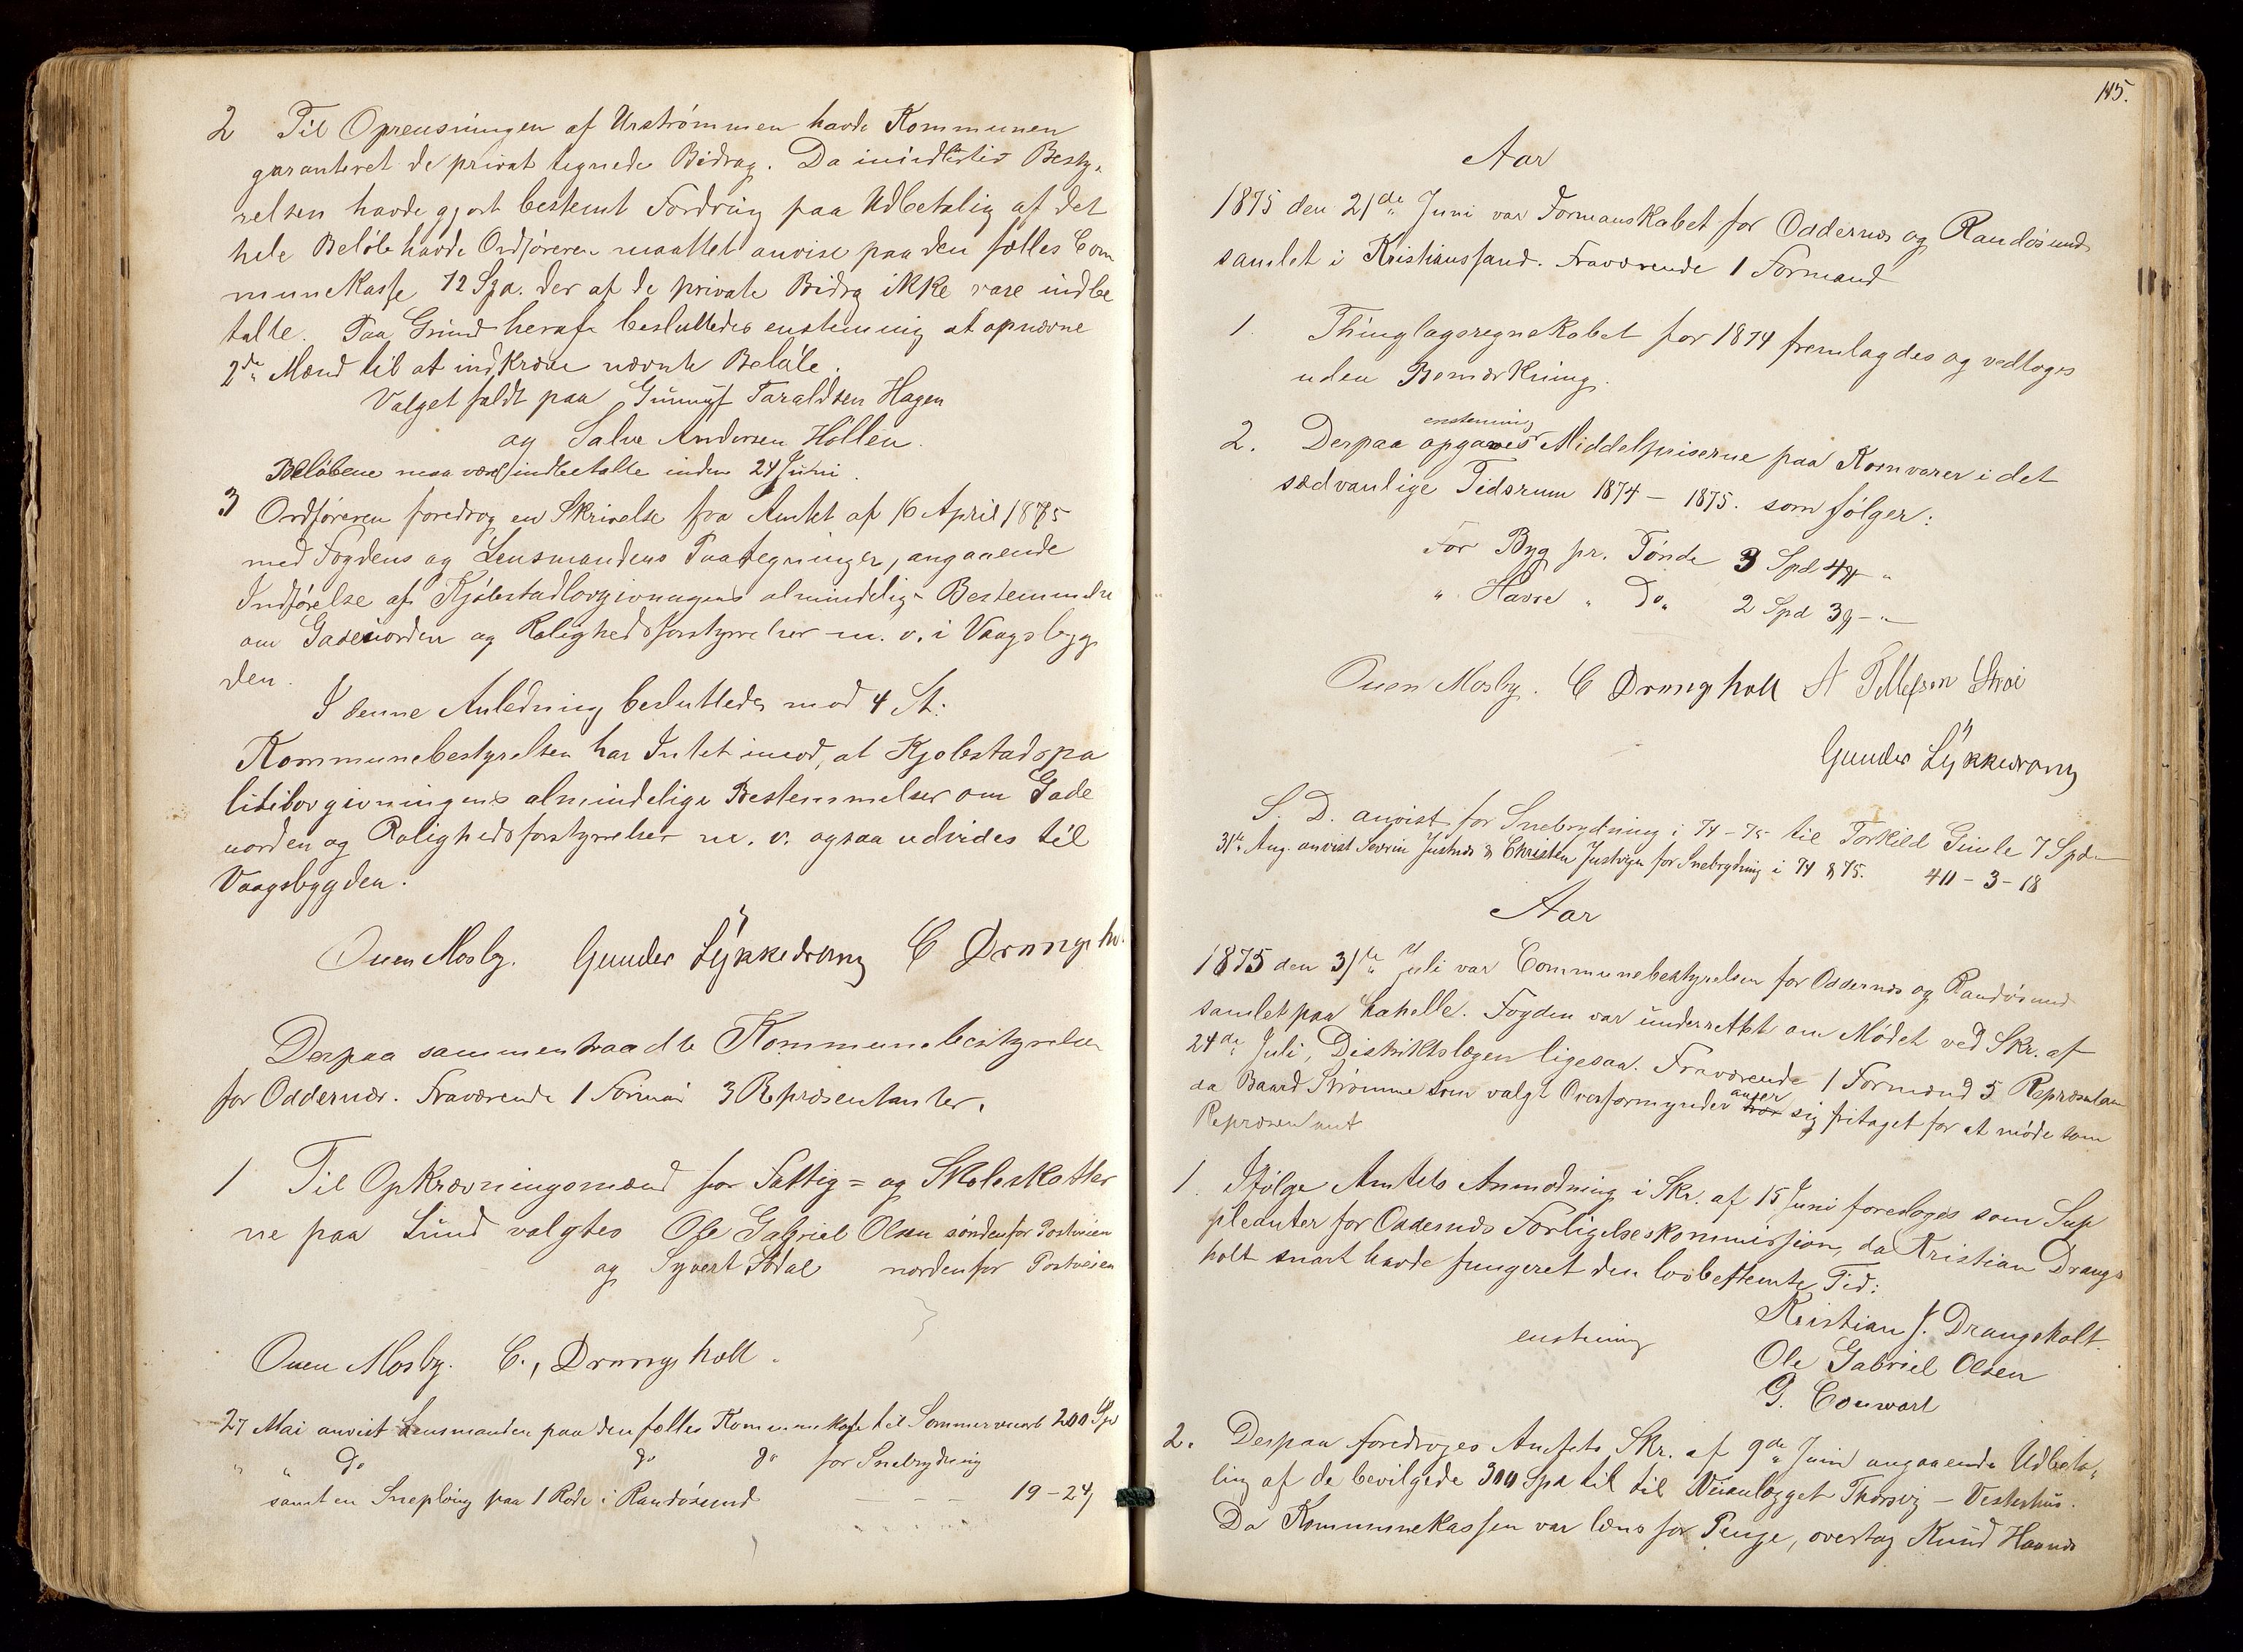 2 Til Oprensningen af Urstrømmen havde Kommunen
garanteret de privat tegnede Bidrag. Da imidlertid Besty-
relsen havde gjort bestemt Fordring paa Udbetaling af det
hele Beløb havde Ordføreren maattet anvise paa den fælles Com
munekasse 12 Spd. der af de private Bidrag ikke vare indbe
talte. Paa Grund heraf besluttedes enstemmig at opnævne
2de Mænd til at indkræve nævnte Beløb.
Valget faldt paa Gunuf Taraldsen Hagen
og Salve Andersen Hollen.
Beløbene maa være indbetalte inden 24 Juni.
3 Ordføreren foredrog en Skrivelse fra Amtet af 16 April 1875
med Fogdens og Lensmandens Paategninger, angaaende
Indførelse af Kjøbstadlovgivningens almindelige Bestemmelser
om Gadeuorden og Rolighedsforstyrrelser m. v. i Vaagsbyg
den.
I denne Anledning besluttedes mod 4 St:
Kommunebestyrelsen har Intet imod, at Kjøbstadspo
litilovgivningens almindelige Bestemmelser om Gade
uorden og Rolighedsforstyrrelser m. v. ogsaa udvides til
Vaagsbygden.
Ouen Mosby. Gunder Lykkedrang C Drangsho
Derpaa sammentraadte Kommunebestyrelsen
for Oddernes. Fraværende 1 Formand 3 Repræsentanter.
1 Til Opkrævningsmænd for Fattig- og Skoleskatter
ne paa Lund valgtes Ole Gabriel Olsen søndenfor Postveien
og Syvert Sødal nordenfor Postveien
Ouen Mosby. C. Drangsholt.
27 Mai anvist Lensmanden paa den fælles Kommunekasse til Sommerveiarb 200 Spd
" " Do do do for Snebrydning
samt en Sneploug paa 1 Rode i Randøsund - - - 19-24
115.
Aar
1875 den 21de Juni var Formanskabet for Oddernes og Randøsund
samlet i Kristianssand. Fraværende 1 Formand
1. Thinglagsregnskabet for 1874 fremlagdes og vedtoges
uden Bemærkning.
enstemmig
2. Derpaa opgaves Middelpriserne paa Kornvarer i det
sædvanlige Tidsrum 1874 - 1875. som følger:
For Byg pr. Tønde 3 Spd 4 "
" Havre " Do " 2 Spd 3 - "
Ouen Mosby. C Drangsholt A Tellefsen Strai
Gunder Lykkedrang
S. D. anvist for Snebrydning i 74-75 til Torkild Gimle 7 Spd
31te Aug. anvist Severin Justnæs & Christen Justvign for Snebrydning i 74 & 75. 40-3-18
Aar
1875 den 31te Juli var Communebestyrelsen for Oddernes og Randøsund
samlet paa Kapelle. Fogden var underrettet om Mødet ved Skr. af
24de Juli, Distriktslægen ligesaa. Fraværende 1 Formænd 5 Repræsentan
da Baard Strømme som valgt Overformynder anser sig fritaget for at møde som
Repræsentant
1. Ifølge Amtets Anmodning i Skr. af 15 Juni foresloges som Sup
pleanter for Oddernes Forligelseskommission, da Kristian Drangs
holt snart havde fungeret den lovbestemte Tid:
Kristian J. Drangsholt.
enstemmig Ole Gabriel Olsen
G. Conwart
2. Derpaa foredroges Amtets Skr. af 9de Juni angaaende Udbeta-
ling af de bevilgede 300 Spd til til Veianlægget Thorsvig - Vesterhus.
Da Kommunekassen var læns for Penge, overtog Knud Haanes